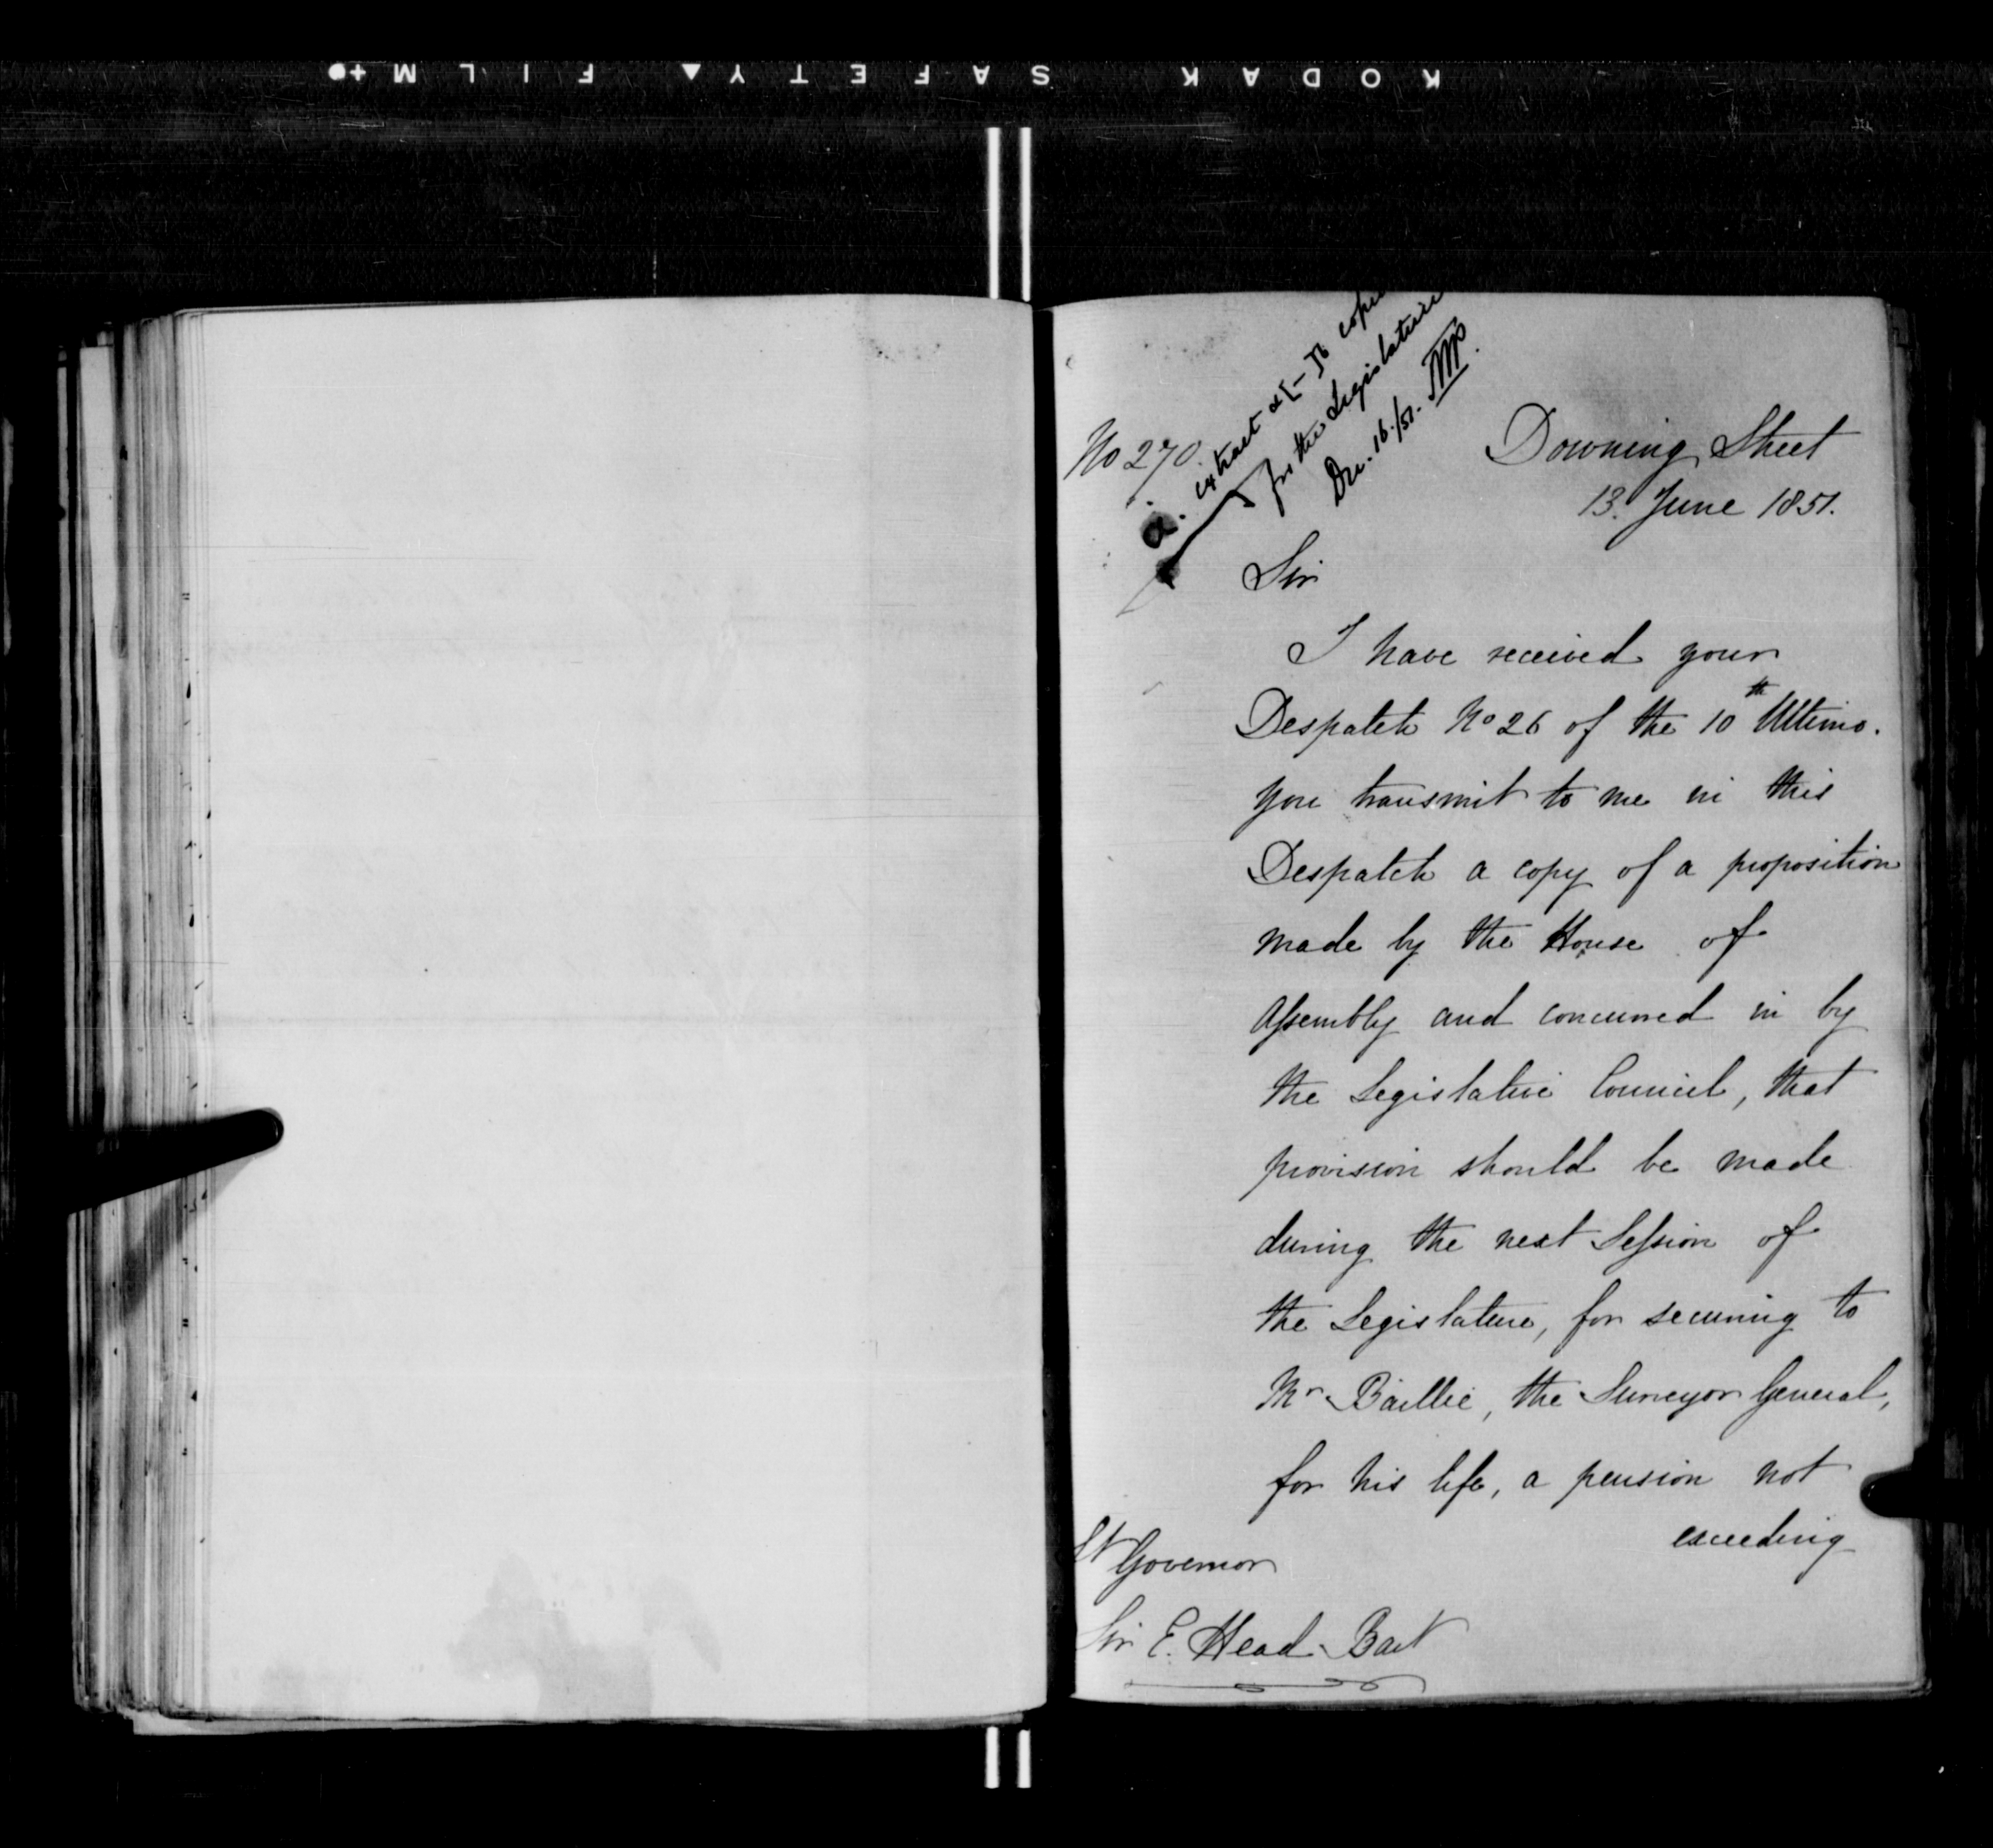 KODAK SAFETY FILM
No 270.
a. extract a [-] b copied
for the Legislature
Dec. 16./51.
Downing Street
13. June 1851.
Sir
I have received your
Despatch No 26 of the 10th Ultimo.
You transmit to me in this
Despatch a copy of a proposition
made by the House of
Assembly and concurred in by
the Legislative Council, that
provision should be made
during the next Session of
the Legislature, for securing to
Mr Baillie, the Surveyor General,
for his life, a pension not
exceeding
Lt Governor
Sir E. Head Bart